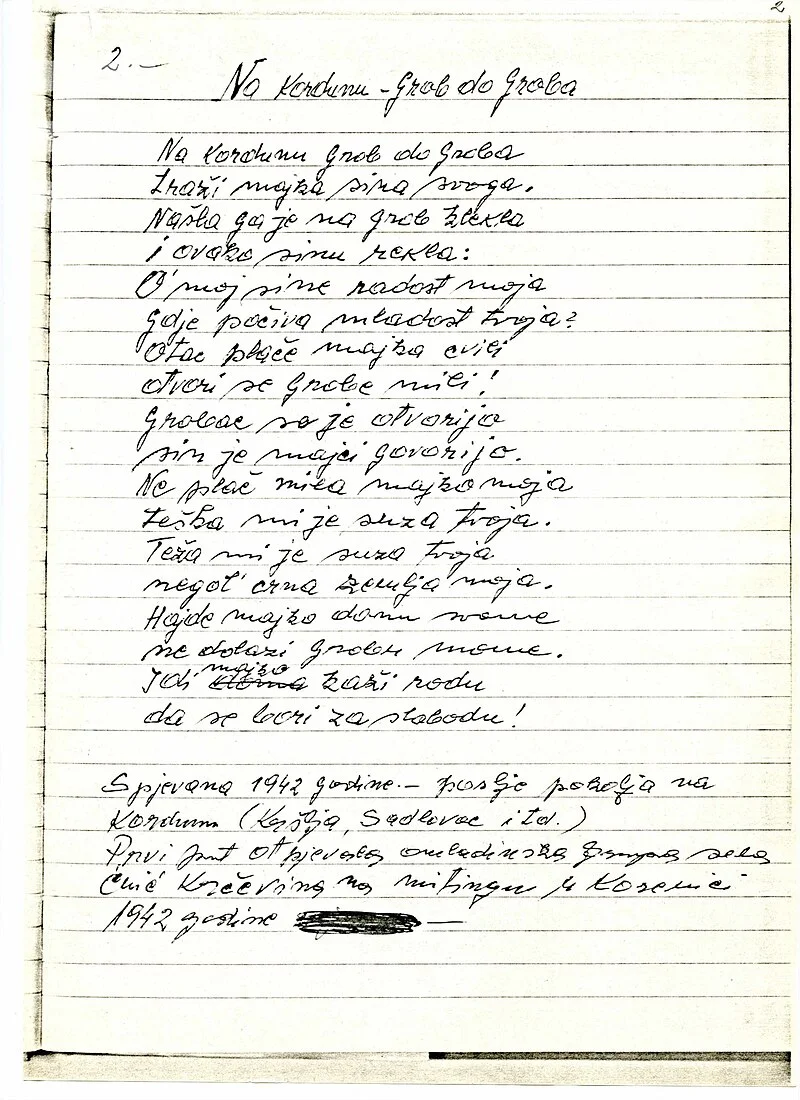 2
2.—
Na Kordunu - Grob do Groba
Na Kordunu Grob do Groba
traži majka sina svoga.
Našla ga je na grob klekla
i ovako sinu rekla:
O' moj sine radost moja
Gdje počiva mladost tvoja?
Otac plače majka cvili
otvori se Grobe mili!
Grobac se je otvorijo
sin je majci govorijo.
Ne plač mila majko moja
teška mi je suza tvoja.
Teža mi je suza tvoja
negol' crna zemlja moja.
Hajde majko domu svome
ne dolazi Grobu mome.
majko
Idi doma kaži rodu
da se bori za slobodu!
Spjevana 1942 godine.— poslje pokolja na
Kordunu (Kršlja, Sadlovac i td.)
Prvi put otpjevala omladinska grupa sela
Korčevina na mitingu u
1942 godine —